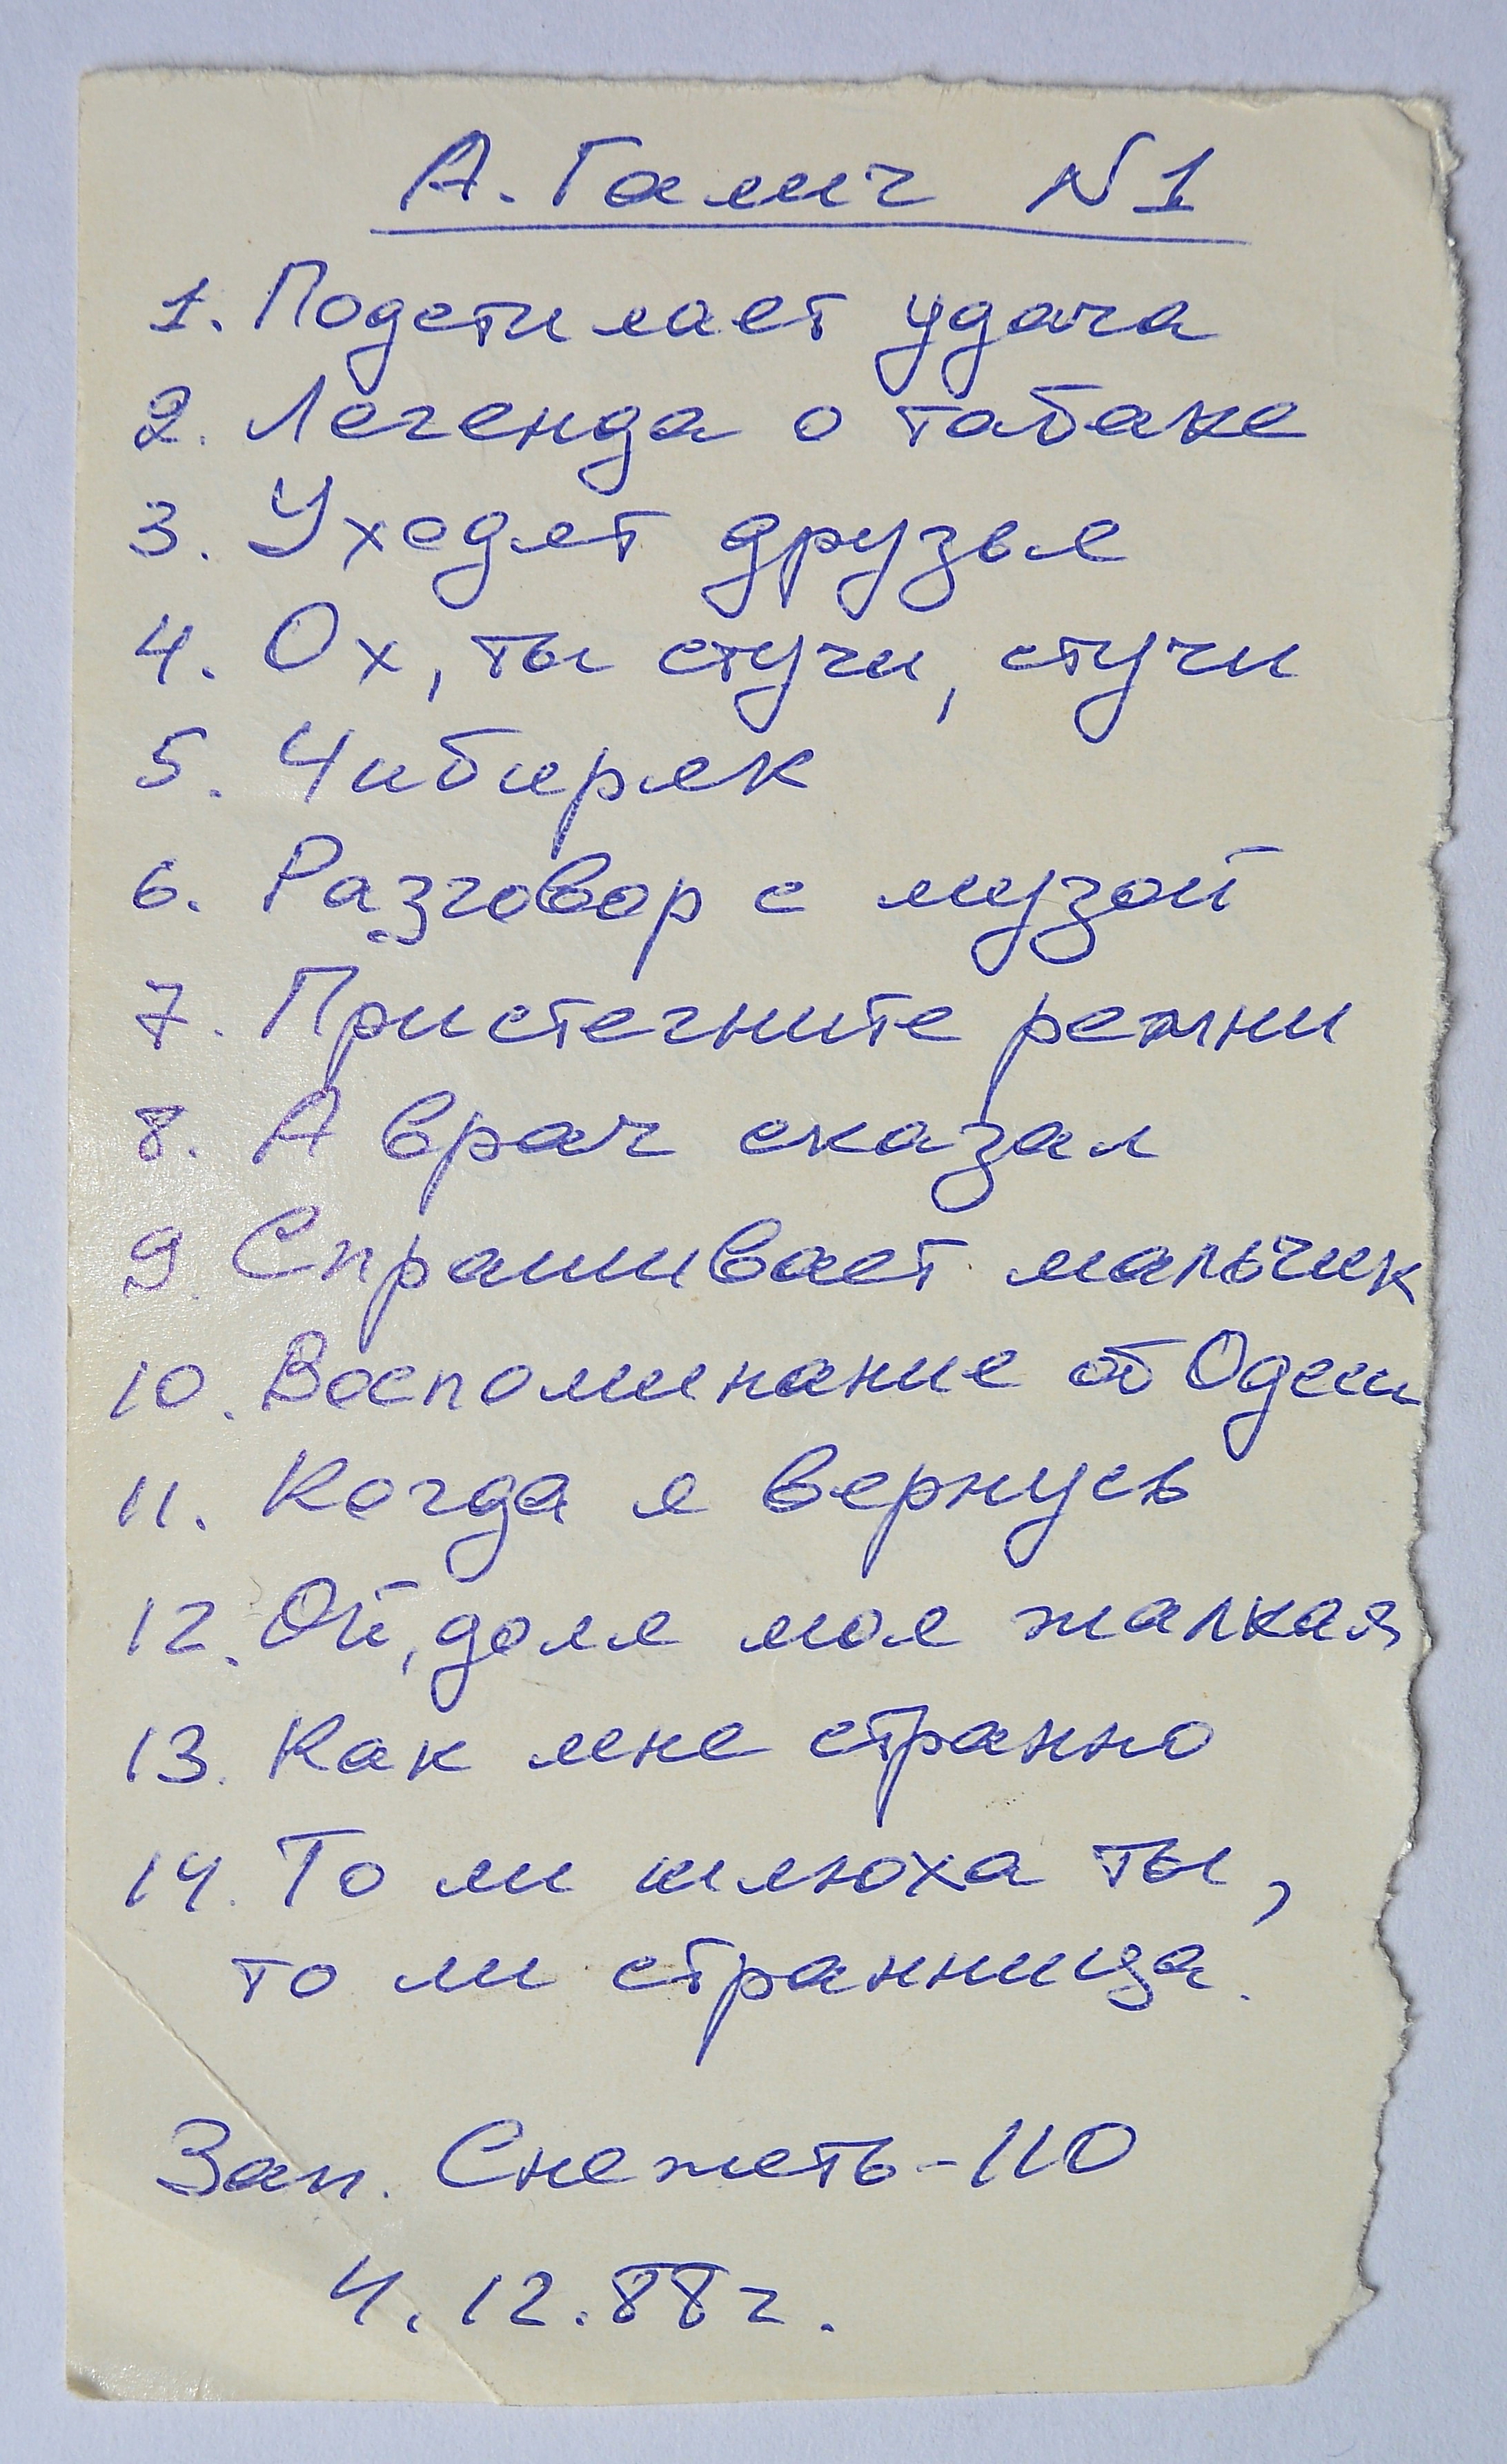 А. Галич N1
1. Подстилает удача
2. Легенда о табаке
3. Уходят друзья
4. Ох, ты стучи, стучи
5. Чибиряк
6. Разговор с музой
7. Пристегните ремни
8. А врач сказал
9. Спрашивает мальчик
10. Воспоминание об Одессы
11. Когда я вернусь
12. Ой, доля моя жалкая
13. Как мне странно
14. То ли шлюха ты,
то ли странница.
Зап. Снежеть-110
4.12.88г.